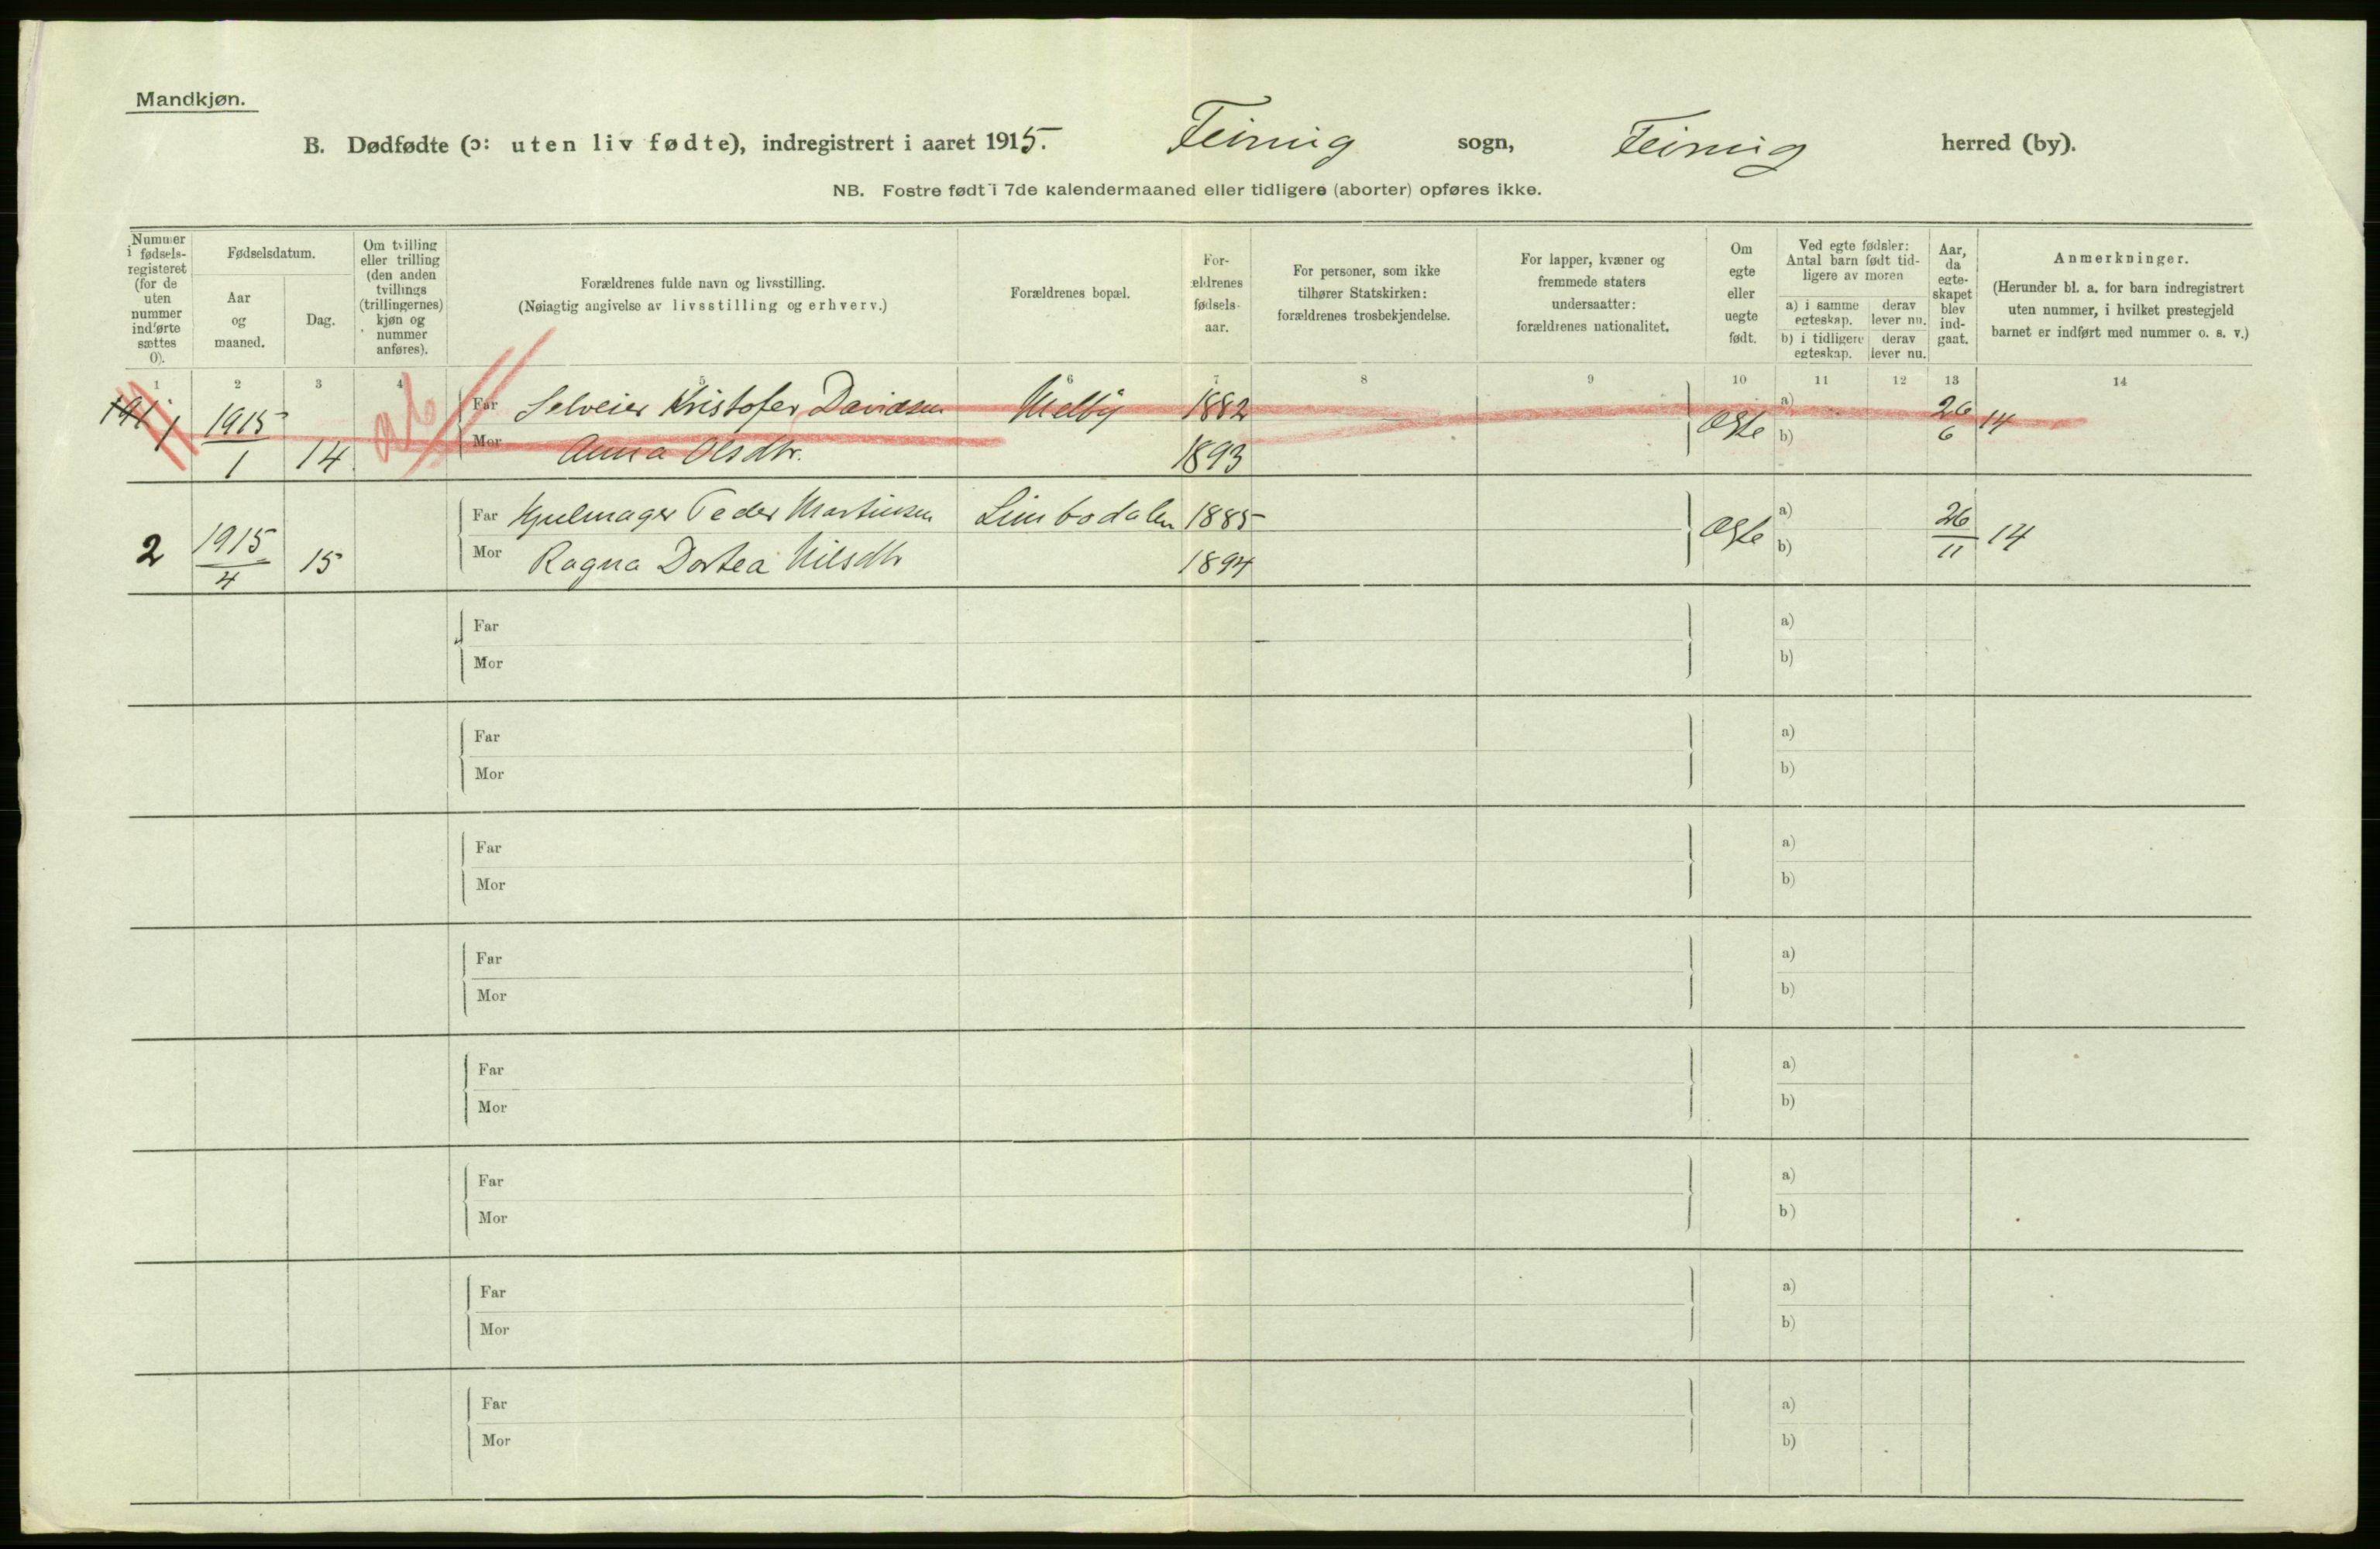 Mandkjøn.
B. Dødfødte (ɔ: uten liv fødte), indregistrert i aaret 1915. Feiring sogn, Feiring herred (by).
NB. Fostre født i 7de kalendermaaned eller tidligere (aborter) opføres ikke.
Nummer i fødsels-registeret (for de uten nummer indførte sættes 0).
Fødselsdatum.
Aar og maaned.
Dag.
Om tvilling eller trilling (den anden tvillings (trillingernes) kjøn og nummer anføres).
Forældrenes fulde navn og livsstilling.
(Nøiagtig angivelse av livsstilling og erhverv.)
Forældrenes bopæl.
For-ældrenes fødsels-aar.
For personer, som ikke tilhører Statskirken: forældrenes trosbekjendelse.
For lapper, kvæner og fremmede staters undersaatter: forældrenes nationalitet.
Om egte eller uegte født.
Ved egte fødsler: Antal barn født tid-ligere av moren
a) i samme egteskap. derav lever nu.
b) i tidligere egteskap. derav lever nu.
Aar, da egte-skapet blev ind-gaat.
Anmerkninger.
(Herunder bl. a. for barn indregistrert uten nummer, i hvilket prestegjeld barnet er indført med nummer o. s. v.)
1 2 3 4 5 6 7 8 9 10 11 12 13 14
1 1915 Far Selveier Kristofer Davidsen Melby 1882 Ægte a) 26 14
1 14 Mor Anna Olsdtr. 1893 b) 6
2 1915 Far Hjulmager Peder Martinsen Limbodalen 1885 Ægte a) 26 14
4 15 Mor Ragna Dortea Nilsdtr 1894 b) 11
Far a)
Mor b)
Far a)
Mor b)
Far a)
Mor b)
Far a)
Mor b)
Far a)
Mor b)
Far a)
Mor b)
Far a)
Mor b)
Far a)
Mor b)